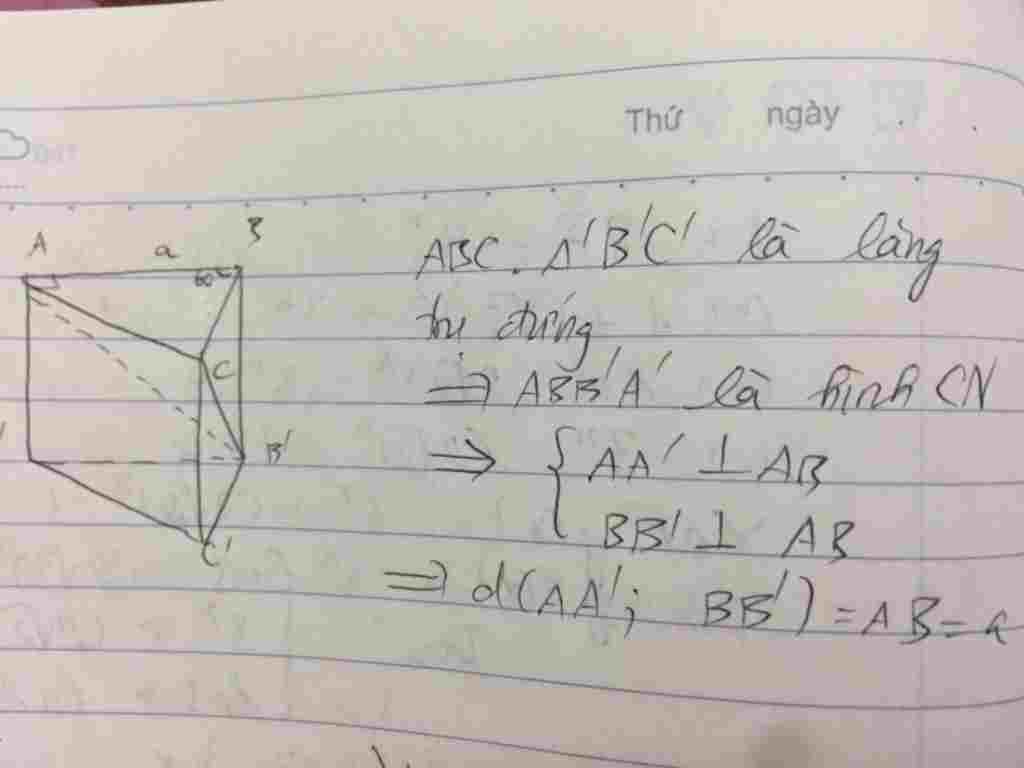 Thứ ngày
A a B
60°
C
B'
C'
ABC. A'B'C' là lăng
trụ đứng
⇒ ABB'A' là hình CN
⇒ { AA' ⊥ AB
BB' ⊥ AB
⇒ d(AA'; BB') = AB = a